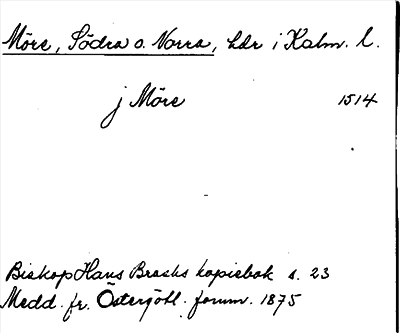 Möre, Södra o. Norra, hdr i Kalm. l.
j Möre 1514
Biskop Hans Brasks kopiebok s. 23
Medd. fr. Östergötl. fornm. 1875